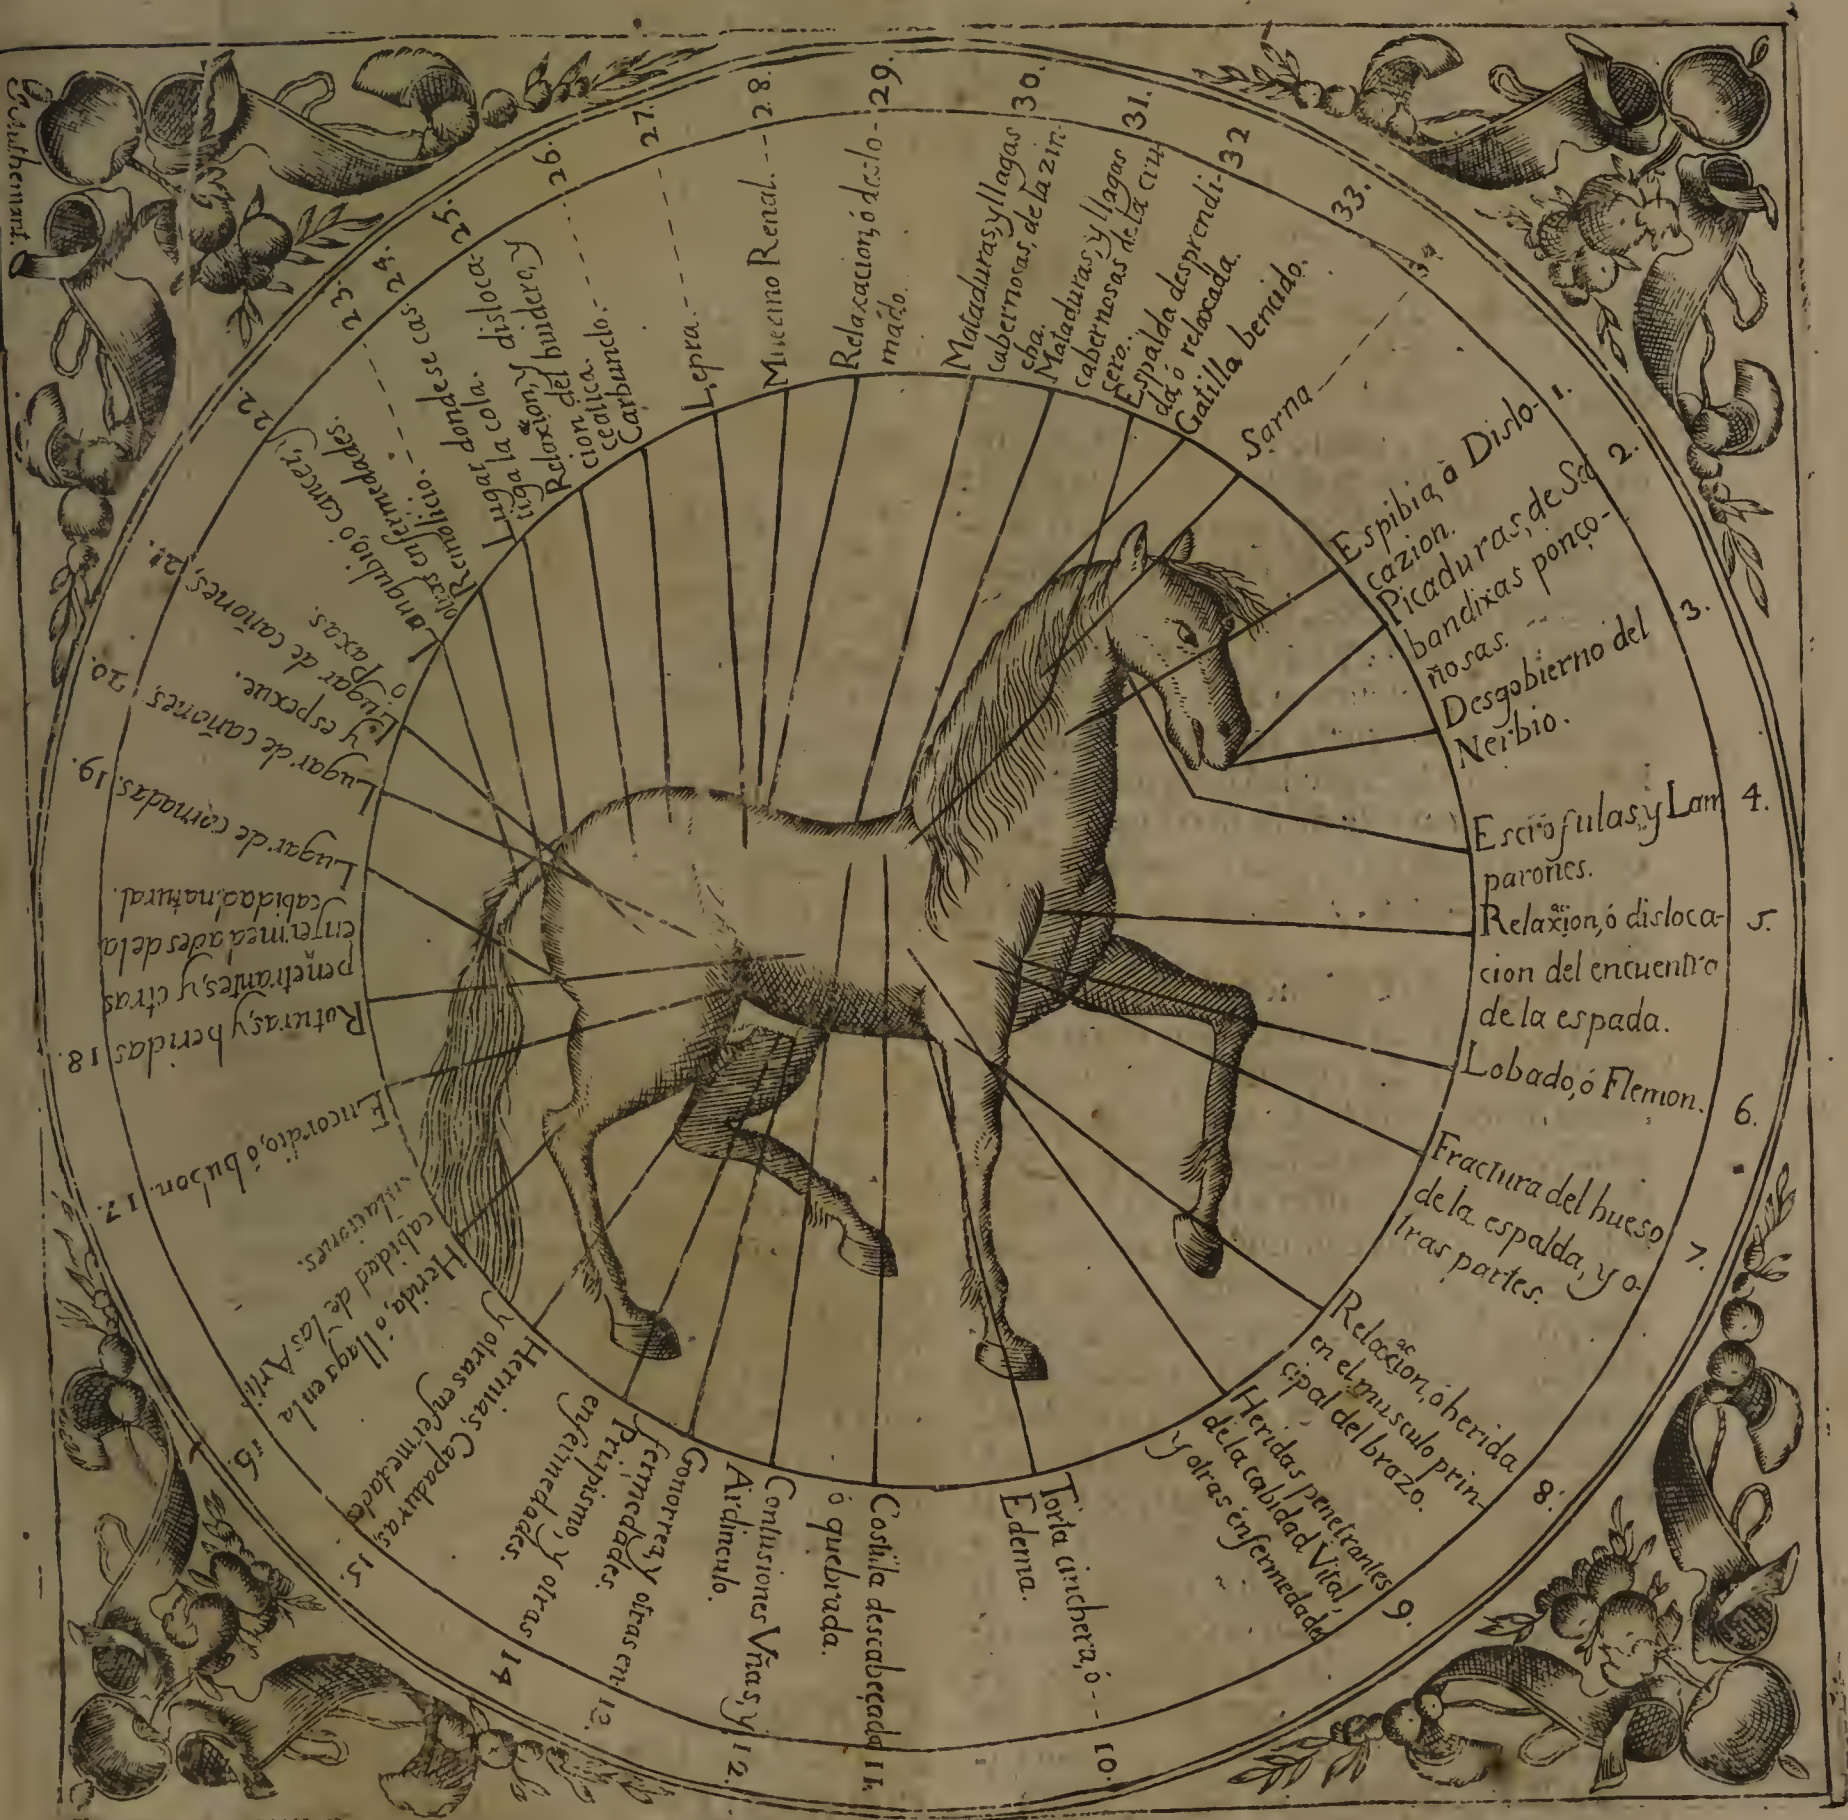 1.
Espibia, ò Dislo-
cazion.
2.
Picaduras, de Sa
bandixas ponço-
ñosas.
3.
Desgobierno del
Nerbio.
4.
Escrofulas, y Lam
parones.
5.
Relaxacion, ó disloca-
cion del encuentro
de la espada.
6.
Lobado, ó Flemon.
7.
Fractura del hueso
de la espalda, y o-
tras partes.
8.
Relaxacion, ó herida
en el musculo prin-
cipal del brazo.
9.
Heridas penetrantes
de la cabidad Vital,
y otras enfermedades
10.
Torta cinchera, ó
Edema.
11.
Costilla descabeçada
ó quebrada.
12.
Contusiones Vñas, y
Airdinculo.
13.
Gonorrea, y otras en
fermedades.
14
Priapismo, y otras
enfermedades.
15.
Hernias, Capaduras,
y otras enfermedades
16.
Herida, o llagas en la
cabidad de las Arti-
culaciones.
17.
Encordio, ó bubon.
18.
Roturas, y heridas
penetrantes, y otras
enfermedades de la
cabidad, natural.
19.
Lugar de cornadas.
20.
Lugar de cañones,
y espexue.
21.
Lugar de cañones,
o Paxas.
22.
Langubio, ó cancer, y
otras enfermedades.
23.
Remolicio.
24.
Lugar donde se cas-
tiga la cola.
25.
Relaxacion, y disloca-
cion del huidero, y
ceatica.
26.
Carbunclo.
27.
Lepra.
28.
Muermo Renal.
29.
Relaxacion, ó deslo-
mado.
30.
Mataduras, y llagas
cabernosas, de la zin-
cha.
31.
Mataduras, y llagas
cabernosas de la cru
cero.
32
Espalda desprendi-
da, ó reloxada.
33.
Gatilla bencido.
Sarna